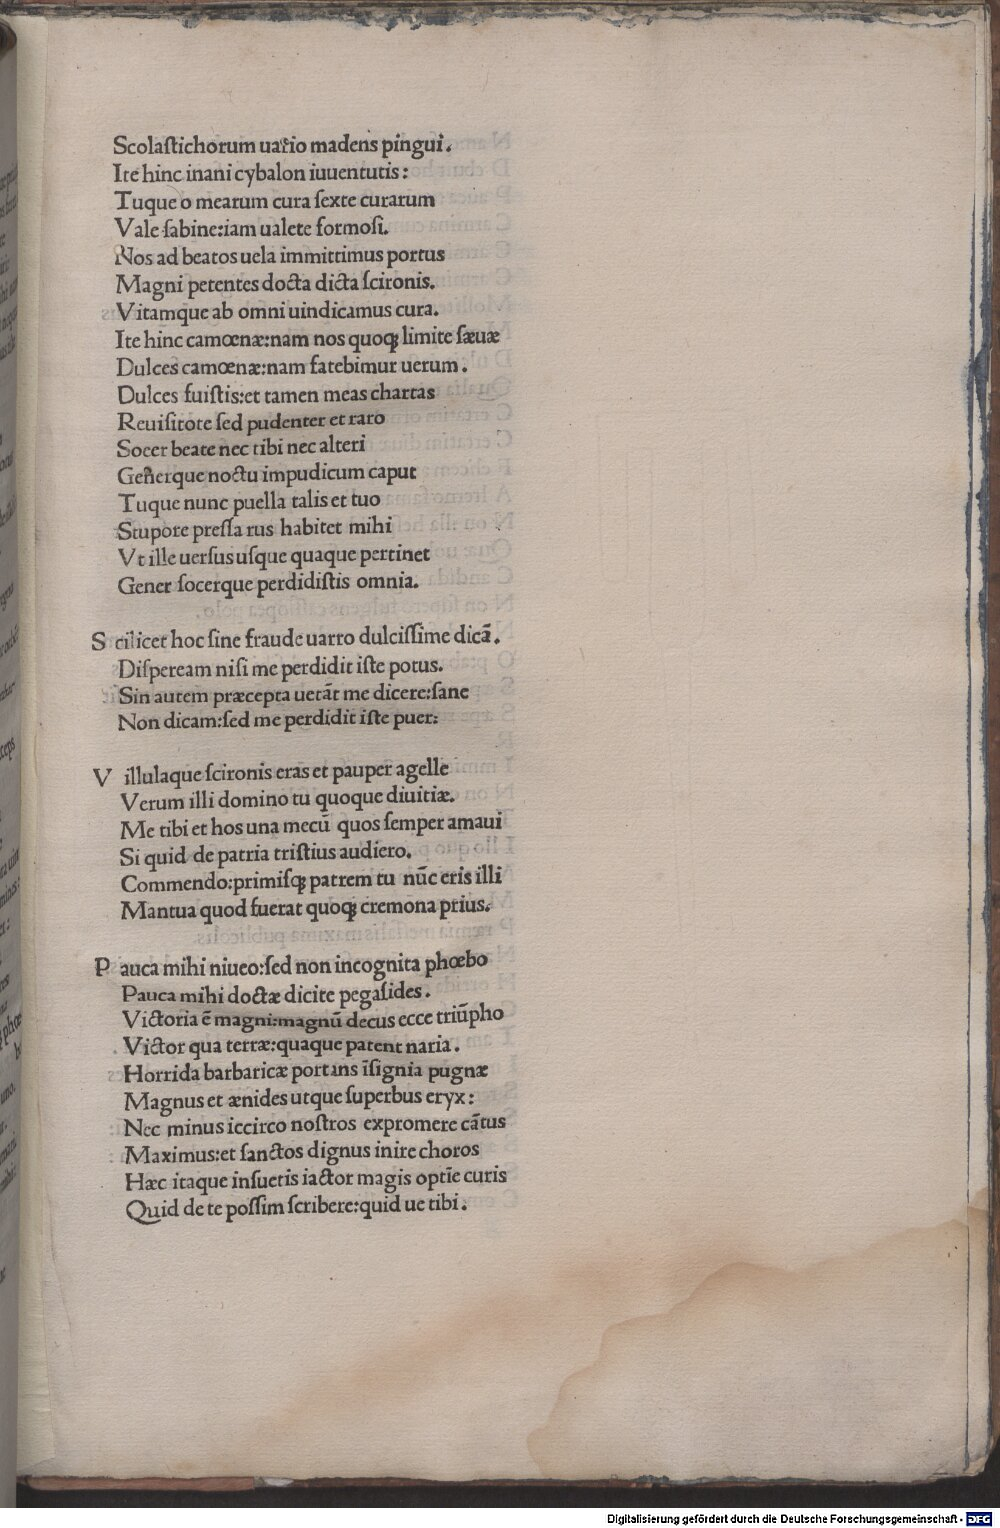 Scolaſtichorum uario madens pingui.
Ite hinc inani cybalon iuuentutis:
Tuque o mearum cura ſexte curarum
Vale ſabine:iam ualete formoſi.
Nos ad beatos uela immittimus portus
Magni petentes docta dicta ſcironis.
Vitamque ab omni uindicamus cura.
Ite hinc camœnæ:nam nos quoqꝫ limite ſæuæ
Dulces camœnæ:nam fatebimur uerum.
Dulces fuiſtis:et tamen meas chartas
Reuiſitote ſed pudenter et raro
Socer beate nec tibi nec alteri
Generque noctu impudicum caput
Tuque nunc puella talis et tuo
Stupore preſſa rus habitet mihi
Vt ille uerſus uſque quaque pertinet
Gener ſocerque perdidiſtis omnia.
S cilicet hoc ſine fraude uarro dulciſſime dicā.
Diſpeream niſi me perdidit iſte potus.
Sin autem præcepta uetāt me dicere:ſane
Non dicam:ſed me perdidit iſte puer:
V illulaque ſcironis eras et pauper agelle
Verum illi domino tu quoque diuitiæ.
Me tibi et hos una mecū quos ſemper amaui
Si quid de patria triſtius audiero.
Commendo:primiſqꝫ patrem tu nūc eris illi
Mantua quod fuerat quoqꝫ cremona prius.
P auca mihi niueo:ſed non incognita phœbo
Pauca mihi doctæ dicite pegaſides.
Victoria ē magni:magnū decus ecce triūpho
Victor qua terræ:quaque patent naria.
Horrida barbaricæ portans īſignia pugnæ
Magnus et ænides utque ſuperbus eryx:
Nec minus iccirco noſtros expromere cātus
Maximus:et ſanctos dignus inire choros
Hæc itaque inſuetis iactor magis optīe curis
Quid de te poſſim ſcribere:quid ue tibi.
Digitalisierung gefördert durch die Deutsche Forschungsgemeinschaft - DFG